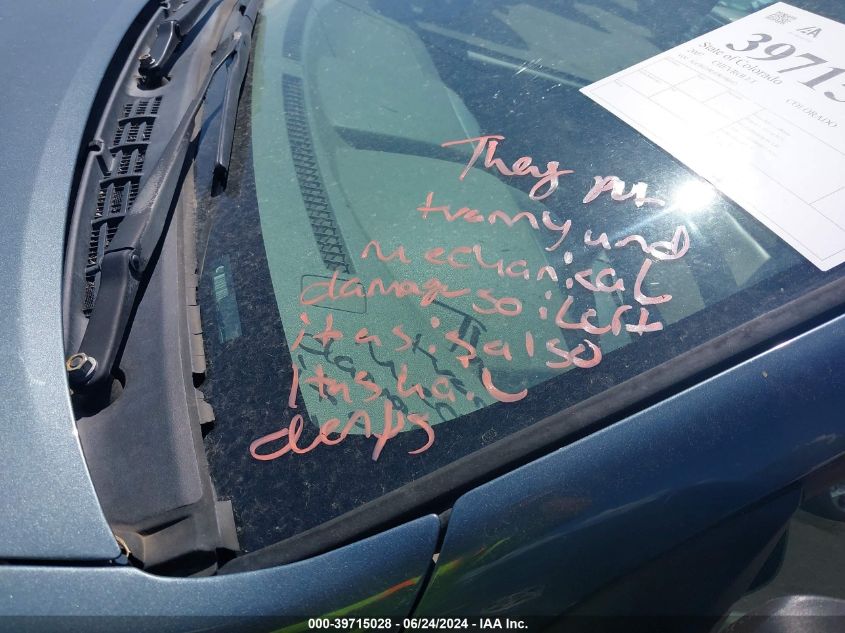 IAA
39715
State of Colorado
CHEVROLET
COLORADO
They put
tramy und
mechanical
damage so i left
it as is it also
Itas hail
dents
000-39715028 - 06/24/2024 - IAA Inc.